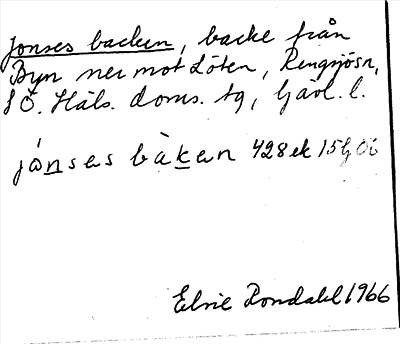 Jonses backen, backe från
Byn ner mot Löten, Rengsjösn,
S Ö. Häls. doms. tg, Gävl. l.
jónses bàken 428 ek 15G 06
Elsie Rondahl 1966